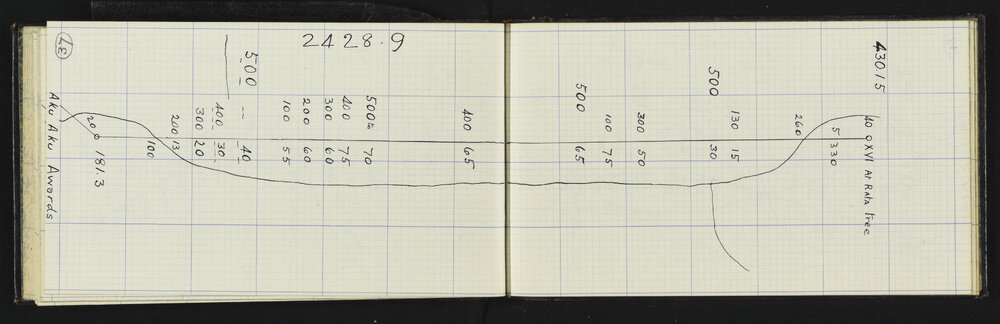 37
2428.9
43015
500
500
500
500
400
300
200
100
400
300
200 13
100
400 65
500 65
100 75
300 50
30
130 15
260
5 330
70
75
60
60
55
-- 40
30
20
20
181.3
Aku Aku Awards
40 O XVI At Rata Tree